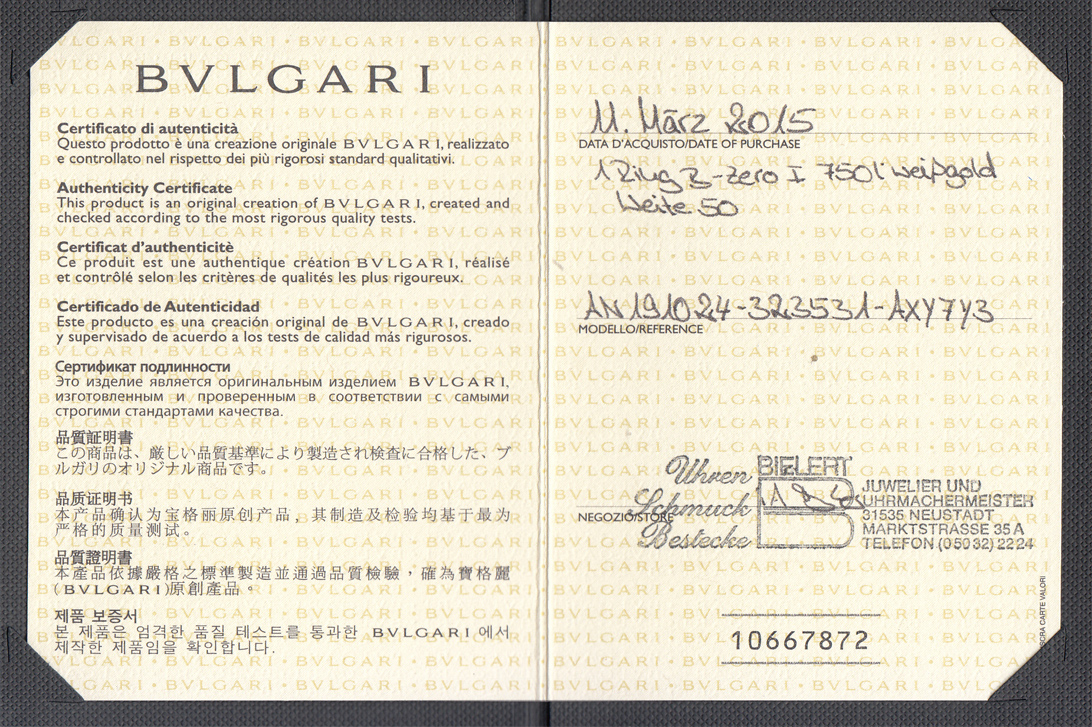 BVLGARI
Certificato di autenticità
Questo prodotto è una creazione originale BVLGARI, realizzato
e controllato nel rispetto dei più rigorosi standard qualitativi.
Authenticity Certificate
This product is an original creation of BVLGARI, created and
checked according to the most rigorous quality tests.
Certificat d'authenticitè
Ce produit est une authentique création BVLGARI, réalisé
et contrôlé selon les critères de qualités les plus rigoureux.
Certificado de Autenticidad
Este producto es una creación original de BVLGARI, creado
y supervisado de acuerdo a los tests de calidad más rigurosos.
Сертификат подлинности
Это изделие является оригинальным изделием BVLGARI,
изготовленным и проверенным в соответствии с самыми
строгими стандартами качества.
品質証明書
この商品は、厳しい品質基準により製造され検査に合格した、ブ
ルガリのオリジナル商品です。
品质证明书
本产品确认为宝格丽原创产品，其制造及检验均基于最为
严格的质量测试。
品質證明書
本產品依據嚴格之標準製造並通過品質檢驗，確為寶格麗
(BVLGARI)原創產品。
제품 보증서
본 제품은 엄격한 품질 테스트를 통과한 BVLGARI에서
제작한 제품임을 확인합니다.
11. März 2015
DATA D'ACQUISTO/DATE OF PURCHASE
1 Ring B-Zero I 750l Weißgold
Weite 50
AN191024-323531-AXY7Y3
MODELLO/REFERENCE
Uhren
Schmuck
Bestecke
BIELERT
JUWELIER UND
UHRMACHERMEISTER
31535 NEUSTADT
MARKTSTRASSE 35 A
TELEFON (05032) 2224
NEGOZIO/STORE
10667872
SCRA CARTE VALORI